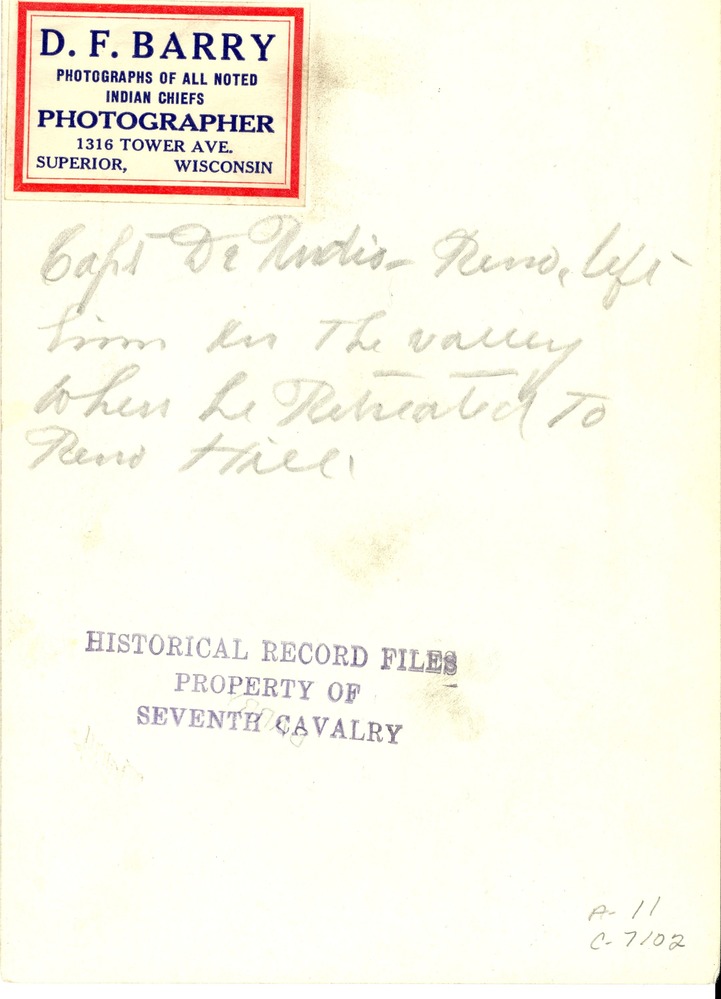 D. F. BARRY
PHOTOGRAPHS OF ALL NOTED
INDIAN CHIEFS
PHOTOGRAPHER
1316 TOWER AVE.
SUPERIOR, WISCONSIN
Capt De Rudio - Reno, left
him in the valley
when he Retreated To
Reno Hill.
HISTORICAL RECORD FILES
PROPERTY OF
SEVENTH CAVALRY
A- 11
C-7102